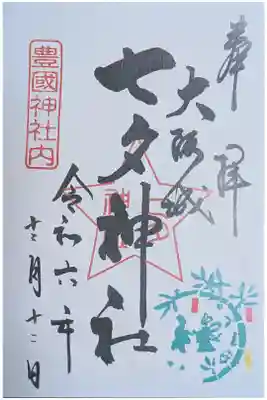 奉拝
大阪城
七夕神社
豊國神社内
令和六年
十二月十二日